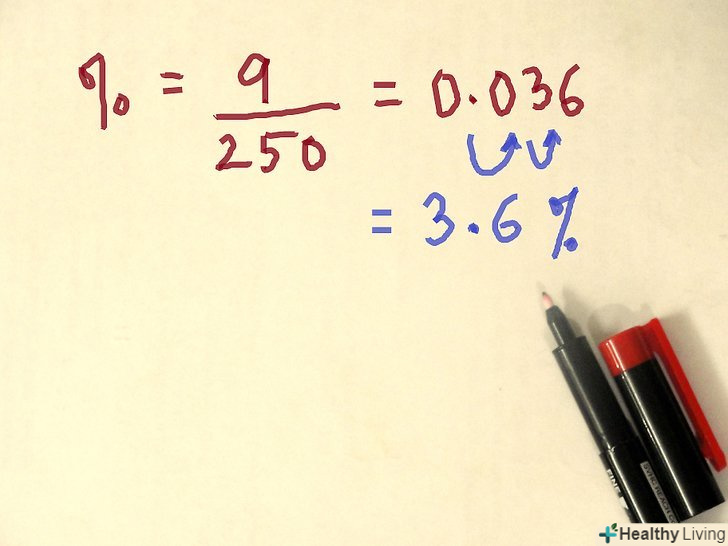 % = 9/250 = 0.036
= 3.6 %
FINE
Healthy Living